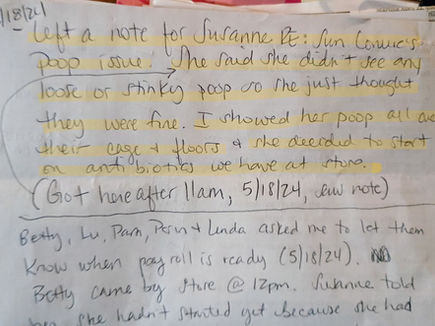 5/18/24
- Left a note for Susanne RE: Sun Conure's
poop issue. She said she didn't see any
loose or stinky poop so she just thought
they were fine. I showed her poop all over
their cage & floors & she decided to start
on antibiotics we have at store.
(Got here after 11am, 5/18/24, saw note)
Betty, Lu, Pam, & Linda asked me to let them
Know when payroll is ready (5/18/24).
Betty came by store @ 12pm. Susanne told
she hadn't started yet because she had